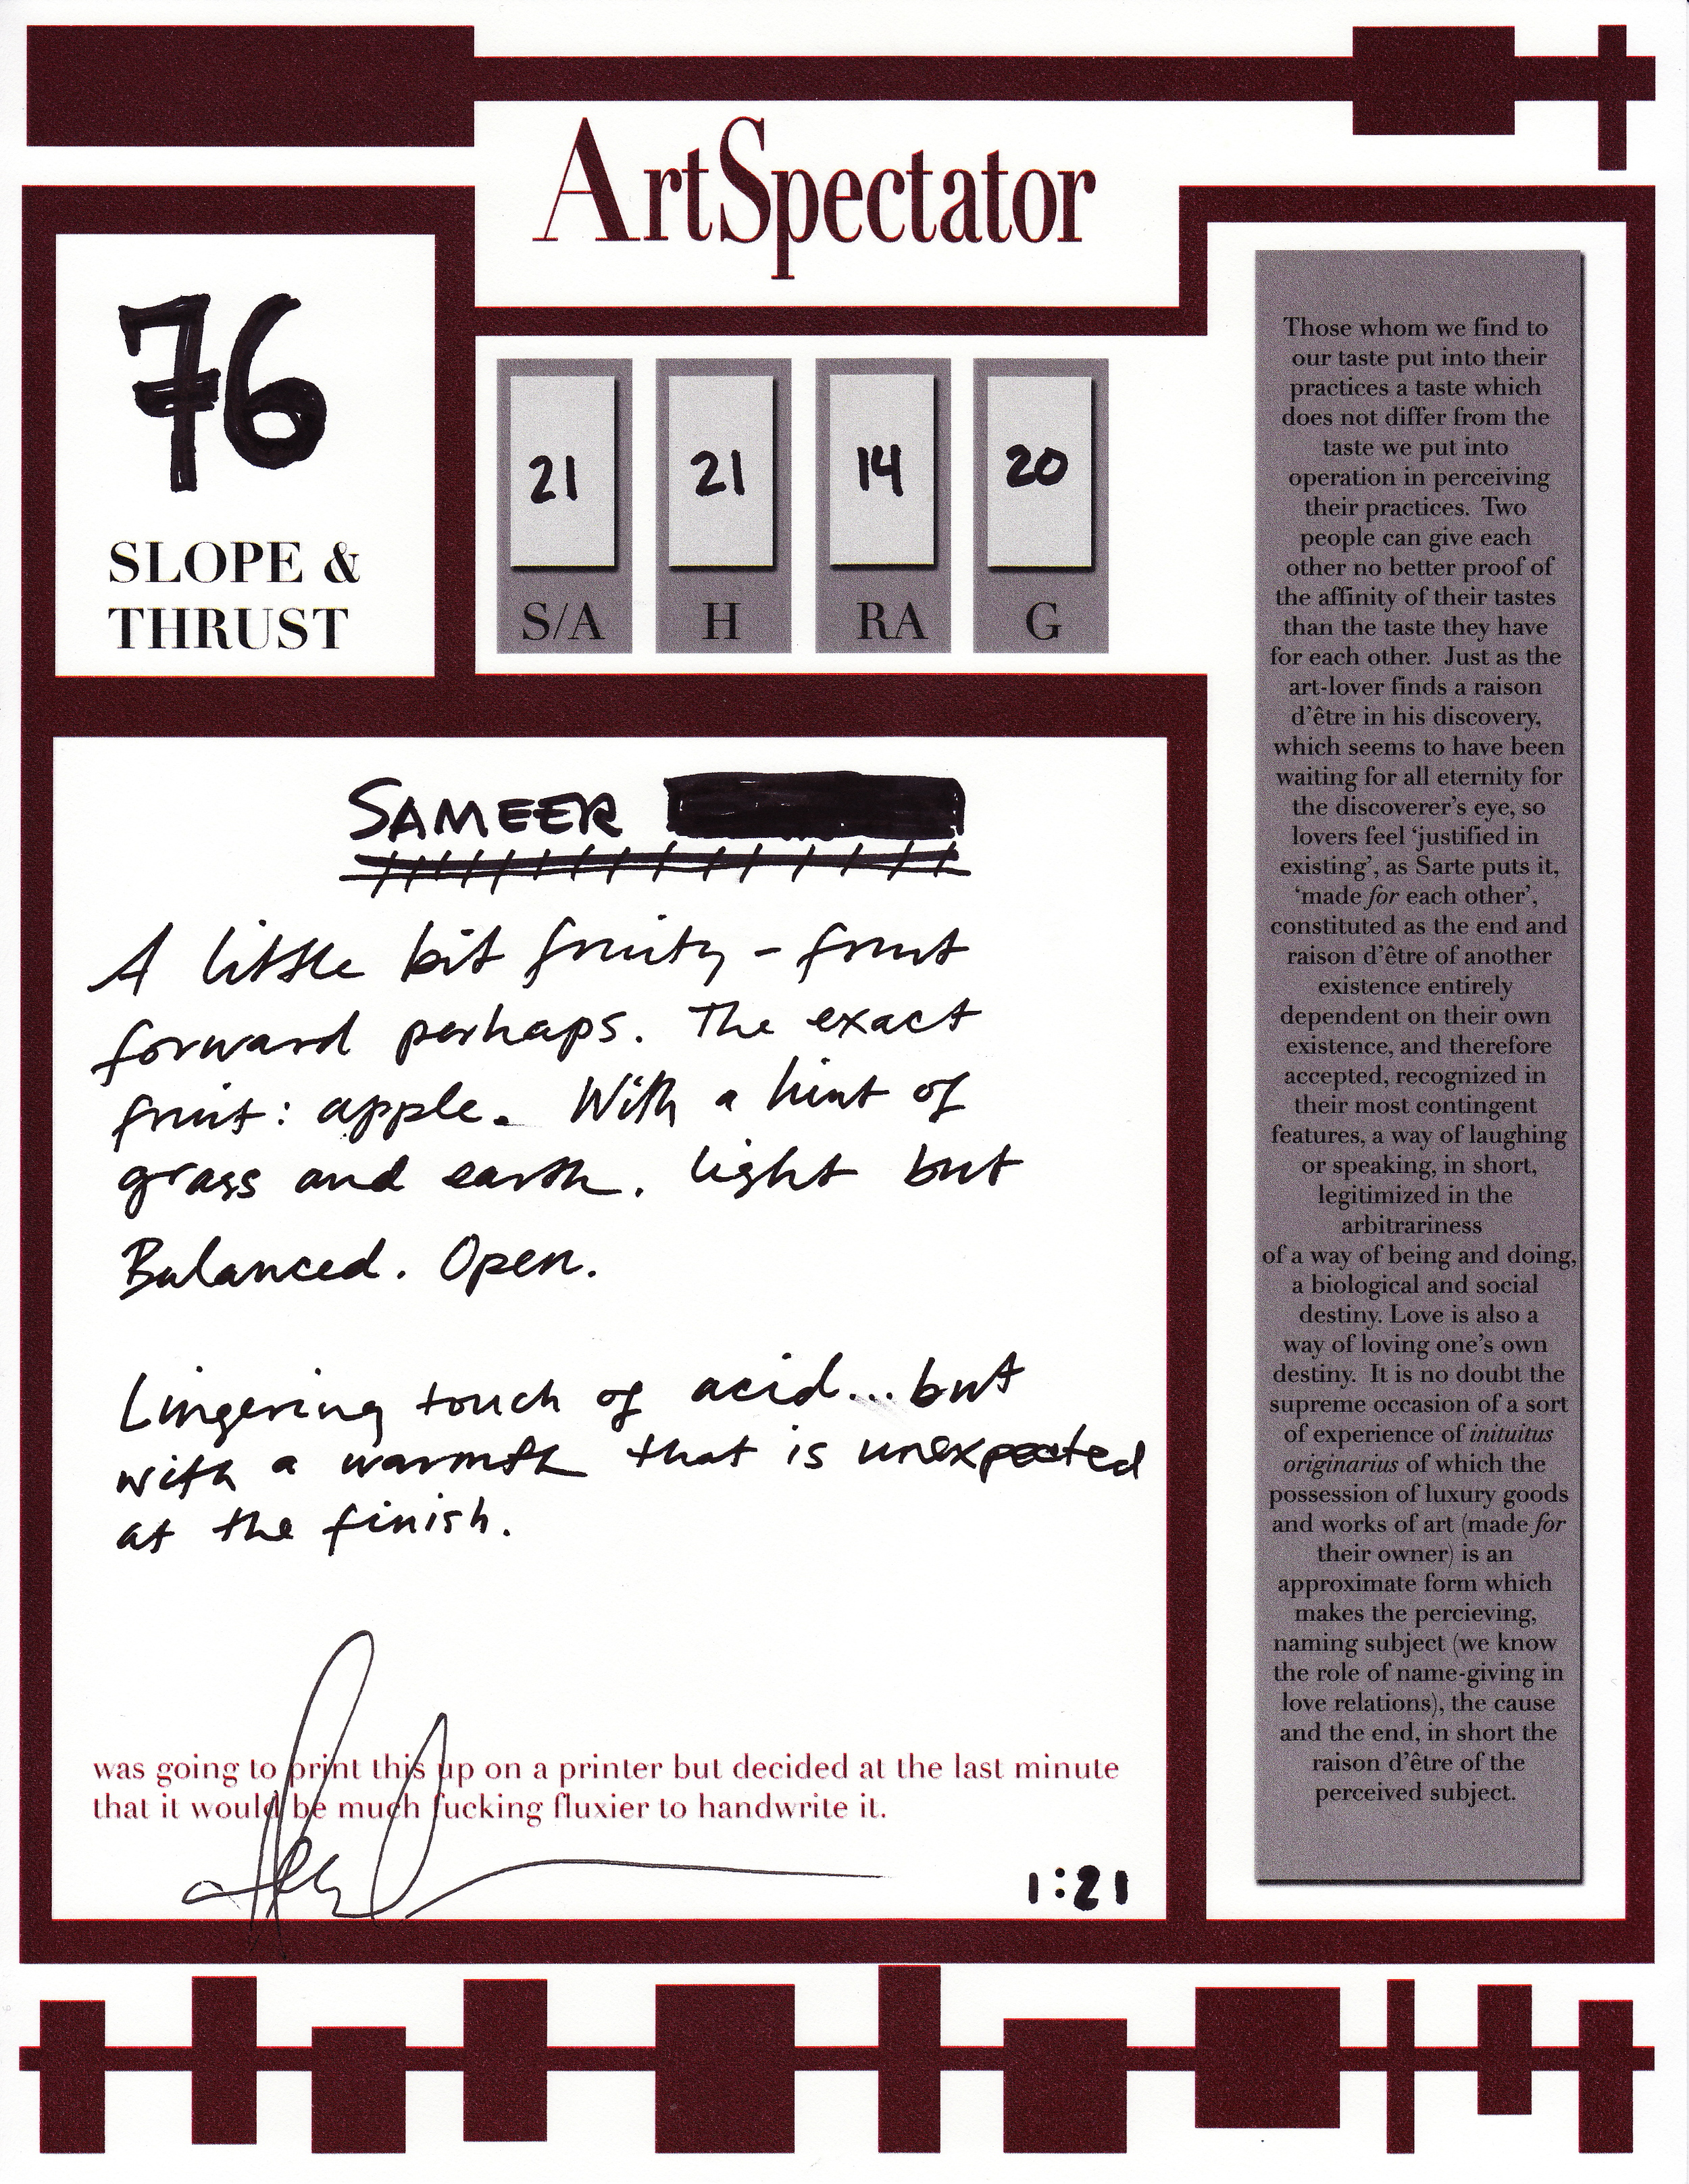 ArtSpectator
76
SLOPE &
THRUST
21 21 14 20
S/A H RA G
SAMEER
A little bit fruity - fruit
forward perhaps. The exact
fruit: apple. With a hint of
grass and earth. Light but
Balanced. Open.
Lingering touch of acid... but
with a warmth that is unexpected
at the finish.
was going to print this up on a printer but decided at the last minute
that it would be much fucking fluxier to handwrite it.
1:21
Those whom we find to
our taste put into their
practices a taste which
does not differ from the
taste we put into
operation in perceiving
their practices. Two
people can give each
other no better proof of
the affinity of their tastes
than the taste they have
for each other. Just as the
art-lover finds a raison
d'être in his discovery,
which seems to have been
waiting for all eternity for
the discoverer's eye, so
lovers feel 'justified in
existing', as Sarte puts it,
'made for each other',
constituted as the end and
raison d'être of another
existence entirely
dependent on their own
existence, and therefore
accepted, recognized in
their most contingent
features, a way of laughing
or speaking, in short,
legitimized in the
arbitrariness
of a way of being and doing,
a biological and social
destiny. Love is also a
way of loving one's own
destiny. It is no doubt the
supreme occasion of a sort
of experience of inituitus
originarius of which the
possession of luxury goods
and works of art (made for
their owner) is an
approximate form which
makes the percieving,
naming subject (we know
the role of name-giving in
love relations), the cause
and the end, in short the
raison d'être of the
perceived subject.